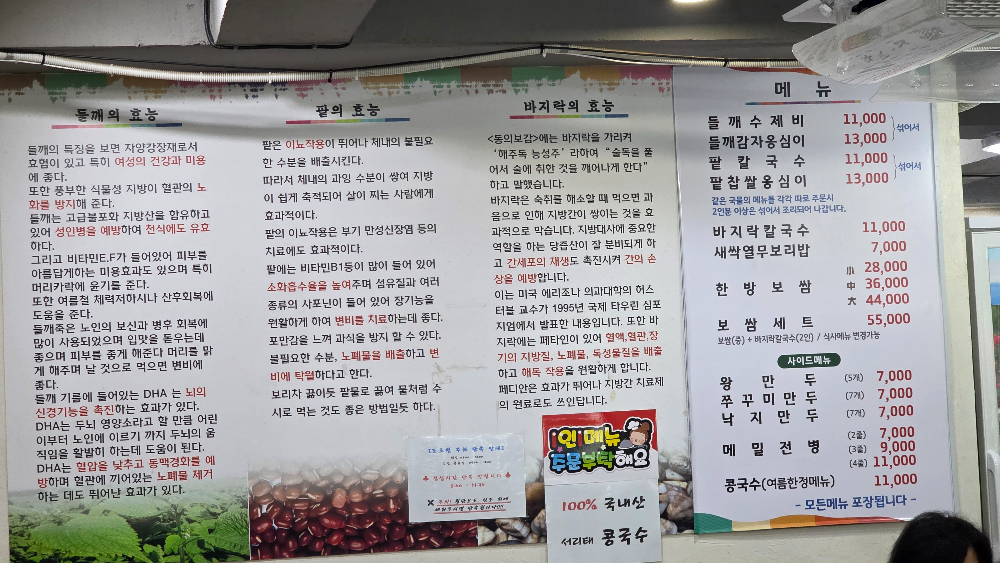 들깨의 효능
들깨의 특징을 보면 자양강장재로서
효험이 있고 특히 여성의 건강과 미용
에 좋다.
또한 풍부한 식물성 지방이 혈관의 노
화를 방지해 준다.
들깨는 고급불포화 지방산을 함유하고
있어 성인병을 예방하여 천식에도 유효
하다.
그리고 비타민E.F가 들어있어 피부를
아름답게하는 미용효과도 있으며 특히
머리카락에 윤기를 준다.
또한 여름철 체력저하시나 산후회복에
도움을 준다.
들깨죽은 노인의 보신과 병후 회복에
많이 사용되었으며 입맛을 돋우는데
좋으며 피부를 좋게 해준다 머리를 맑
게 해주며 날 것으로 먹으면 변비에
좋다.
들깨 기름에 들어있는 DHA 는 뇌의
신경기능을 촉진하는 효과가 있다.
DHA는 두뇌 영양소라고 할 만큼 어린
이부터 노인에 이르기 까지 두뇌의 움
직임을 활발히 하는데 도움이 된다.
DHA는 혈압을 낮추고 동맥경화를 예
방하며 혈관에 끼어있는 노폐물 제거
하는 데도 뛰어난 효과가 있다.
팥의 효능
팥은 이뇨작용이 뛰어나 체내의 불필요
한 수분을 배출시킨다.
따라서 체내의 과잉 수분이 쌓여 지방
이 쉽게 축적되어 살이 찌는 사람에게
효과적이다.
팥의 이뇨작용은 부기 만성신장염 등의
치료에도 효과적이다.
팥에는 비타민B1등이 많이 들어 있어
소화흡수율을 높여주며 섬유질과 여러
종류의 사포닌이 들어 있어 장기능을
원활하게 하여 변비를 치료하는데 좋다.
포만감을 느껴 과식을 방지 할 수 있다.
불필요한 수분, 노폐물을 배출하고 변
비에 탁월하다고 한다.
보리차 끓이듯 팥물로 끓여 물처럼 수
시로 먹는 것도 좋은 방법일듯 하다.
바지락의 효능
<동의보감>에는 바지락을 가리켜
'해주독 능성주' 라하여 "술독을 풀
어서 술에 취한 것을 깨어나게 만다"
하고 말했습니다.
바지락은 숙취를 해소할 때 먹으면 과
음으로 인해 지방간이 쌓이는 것을 효
과적으로 막습니다. 지방대사에 중요한
역할을 하는 당즙산이 잘 분비되게 하
고 간세포의 재생도 촉진시켜 간의 손
상을 예방합니다.
이는 미국 에리조나 의과대학의 허스
터블 교수가 1995년 국제 타우린 심포
지엄에서 발표한 내용입니다. 또한 바
지락에는 페타인이 있어 혈액,혈관,장
기의 지방질, 노폐물, 독성물질을 배출
하고 해독 작용을 원활하게 합니다.
페디안은 효과가 뛰어나 지방간 치료제
의 원료로도 쓰인답니다.
1인 메뉴
주문부탁해요
100% 국내산
서리태 콩국수
메 뉴
들깨수제비 11,000
들깨감자옹심이 13,000
섞어서
팥칼국수 11,000
팥찹쌀옹심이 13,000
섞어서
같은 국물의 메뉴를 각각 따로 주문시
2인분 이상은 섞어서 조리되어 나갑니다.
바지락칼국수 11,000
새싹열무보리밥 7,000
한방보쌈 小 28,000
中 36,000
大 44,000
보쌈세트 55,000
보쌈(중) + 바지락칼국수(2인) / 식사메뉴 변경가능
사이드메뉴
왕만두 (5개) 7,000
쭈꾸미만두 (7개) 7,000
낙지만두 (7개) 7,000
메밀전병 (2줄) 7,000
(3줄) 9,000
(4줄) 11,000
콩국수(여름한정메뉴) 11,000
- 모든메뉴 포장됩니다 -